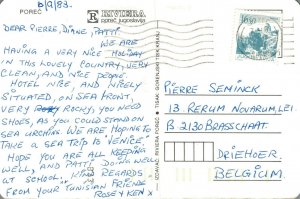 6/9/83.
POREČ
RIVIERA
poreč jugoslavija
DEAR PIERRE, DIANE, PATTI.
WE ARE
HAVING A VERY NICE HOLIDAY
IN THIS LOVELY COUNTRY, VERY
CLEAN, AND NICE PEOPLE.
HOTEL NICE, AND NICELY
SITUATED, ON SEA FRONT,
VERY ROCKY, YOU NEED
SHOES, AS YOU COULD STAND ON
SEA URCHINS. WE ARE HOPING TO
TAKE A SEA TRIP TO "VENICE".
HOPE YOU ARE ALL KEEPING
WELL, AND PATTI DOING WELL
AT SCHOOL. KIND REGARDS
FROM YOUR TUNISIAN FRIENDS
ROSE & KEN
PIERRE SEMINCK
13 RERUM NOVARUMLEI
B 2130 BRASSCHAAT
DRIEHOEK.
BELGIUM.